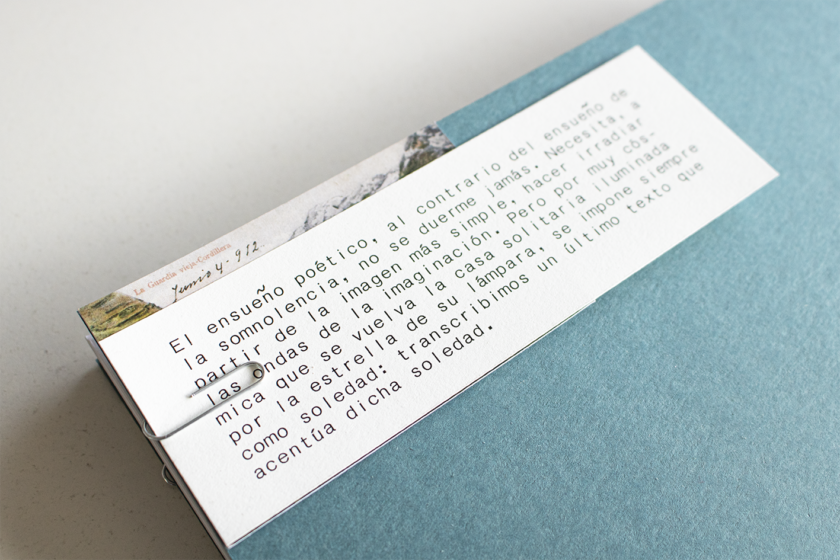 La Guardia vieja-Cordillera
Junio 4 - 912
El ensueño poético, al contrario del ensueño de
la somnolencia, no se duerme jamás. Necesita, a
partir de la imagen más simple, hacer irradiar
las ondas de la imaginación. Pero por muy cós-
mica que se vuelva la casa solitaria iluminada
por la estrella de su lámpara, se impone siempre
como soledad: transcribimos un último texto que
acentúa dicha soledad.